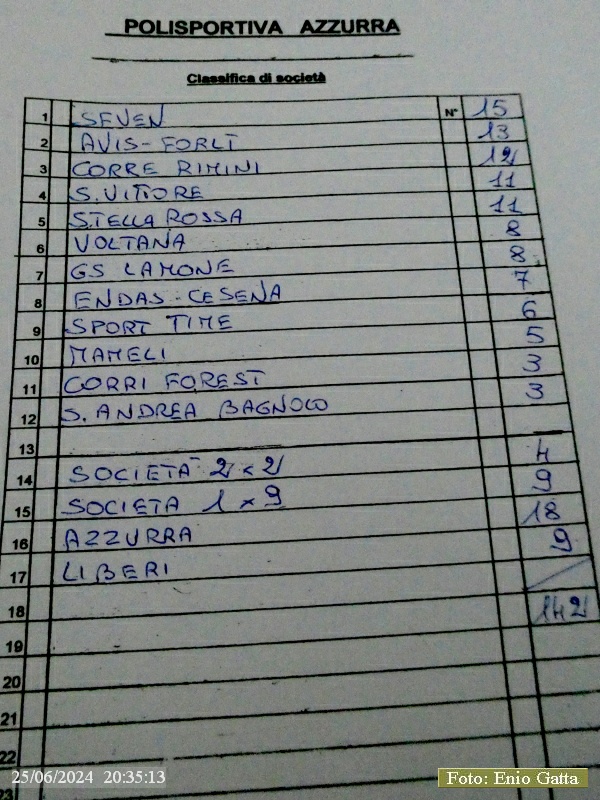 POLISPORTIVA AZZURRA
Classifica di società
1 SEVEN N° 15
2 AVIS-FORLI 13
3 CORRE RIMINI 12
4 S.VITTORE 11
5 STELLA ROSSA 11
6 VOLTANA 8
7 GS LAMONE 8
8 ENDAS-CESENA 7
9 SPORT TIME 6
10 MAMELI 5
11 CORRI FOREST 3
12 S. ANDREA BAGNOLO 3
13
14 SOCIETA' 2 x 2 4
15 SOCIETA 1 x 9 9
16 AZZURRA 18
17 LIBERI 9
18 142
19
20
21
22
23
25/06/2024 20:35:13
Foto: Enio Gatta